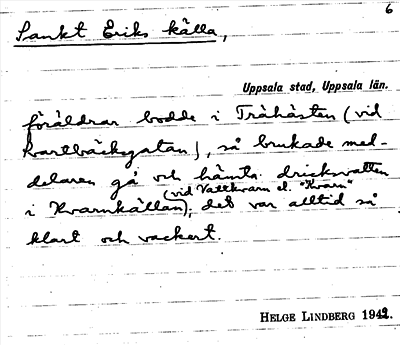 6
Sankt Eriks källa,
Uppsala stad, Uppsala län.
föräldrar bodde i Trähästen (vid
Svartbäcksgatan), så brukade med-
delaren gå och hämta dricksvatten
(vid Vattkvarn el. "Kvarn"
i Kvarnkällan), det var alltid så
klart och vackert.
HELGE LINDBERG 1942.